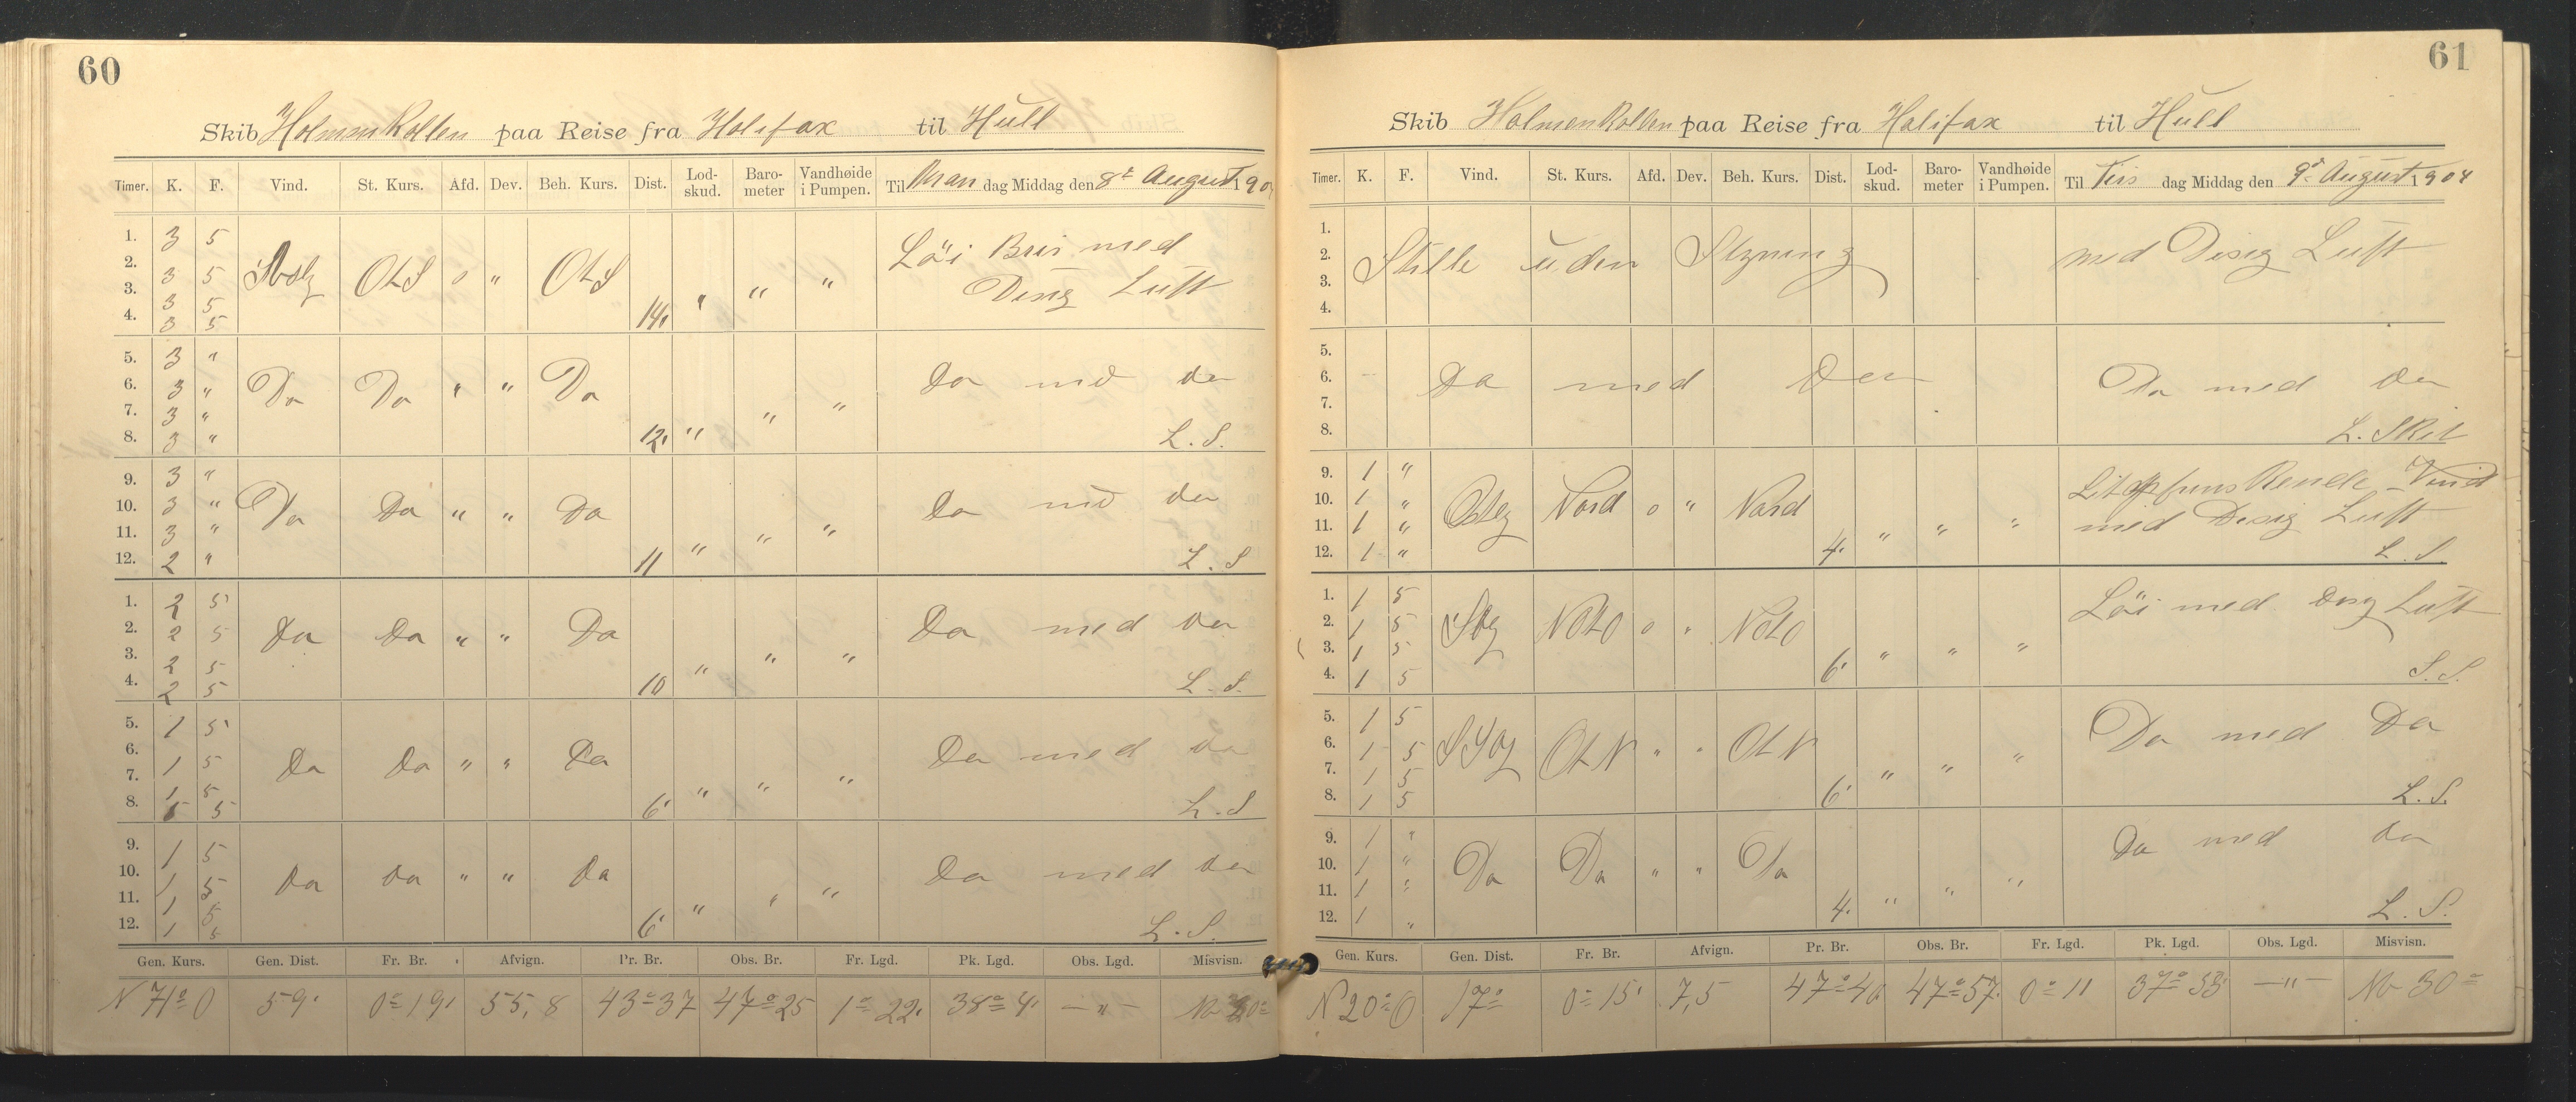 60
Skib Holmenkollen paa Reise fra Halifax til Hull
Timer. K. F. Vind. St. Kurs. Afd. Dev. Beh. Kurs. Dist. Lod-skud. Baro-meter Vandhøide i Pumpen. Til Man dag Middag den 8de August 190
1. 3 5 Løi Bris med
2. 3 5 OtS 0 " OtS " " " Disig Luft
3. 3 5
4. 3 5 14,
5. 3 "
6. 3 " Do Do " " Do Do md do
7. 3 " " "
8. 3 " 12, " L. S.
9. 3 "
10. 3 " Do Do " " Do Do md do
11. 3 " " " "
12. 2 " 11 L. S
1. 2 5
2. 2 5 Do Do " " Do Do med do
3. 2 5 " " "
4. 2 5 10 L. S.
5. 1 5
6. 1 5 Do Do " " Do Do med do
7. 1 5 " " "
8. 5 6' L. S
9. 1 5
10. 1 5 Do Do " " Do Do med do
11. 1 5 " " "
12. 1 5 6' L. S.
Gen. Kurs. Gen. Dist. Fr. Br. Afvign. Pr. Br. Obs. Br. Fr. Lgd. Pk. Lgd. Obs. Lgd. Misvisn.
N 71° O 59' 0° 19' 55,8 43° 37 47° 25 1° 22' 38° 4' — " —
61
Skib Holmenkollen paa Reise fra Halifax til Hull
Timer. K. F. Vind. St. Kurs. Afd. Dev. Beh. Kurs. Dist. Lod-skud. Baro-meter Vandhøide i Pumpen. Til Tirs dag Middag den 9de August 1904
1.
2. Stille uden Styning med Disig Luft
3.
4.
5.
6. Do med Do Do med do
7.
8. L. Skil
9. 1 " Vind
10. 1 " Ostlg Nord 0 " Nord
11. 1 " " " " med Disig Luft
12. 1 " 4. L. S.
1. 1 5 Løi med Disig Luft
2. 1 5 NOtO 0 " NOtO
3. 1 5 " " "
4. 1 5 6' S. S.
5. 1 5 Do med Do
6. 1 5 OtN " " OtN
7. 1 5 " " "
8. 1 5 6' L. S.
9. 1 " Do med do
10. 1 " Do Do " " Do
11. 1 " " " "
12. 1 " 4. L. S.
Gen. Kurs. Gen. Dist. Fr. Br. Afvign. Pr. Br. Obs. Br. Fr. Lgd. Pk. Lgd. Obs. Lgd. Misvisn.
N 20° O 17° 0° 15' 7,5 47° 40 47° 57' 0° 11 37° 53' — " — 30°